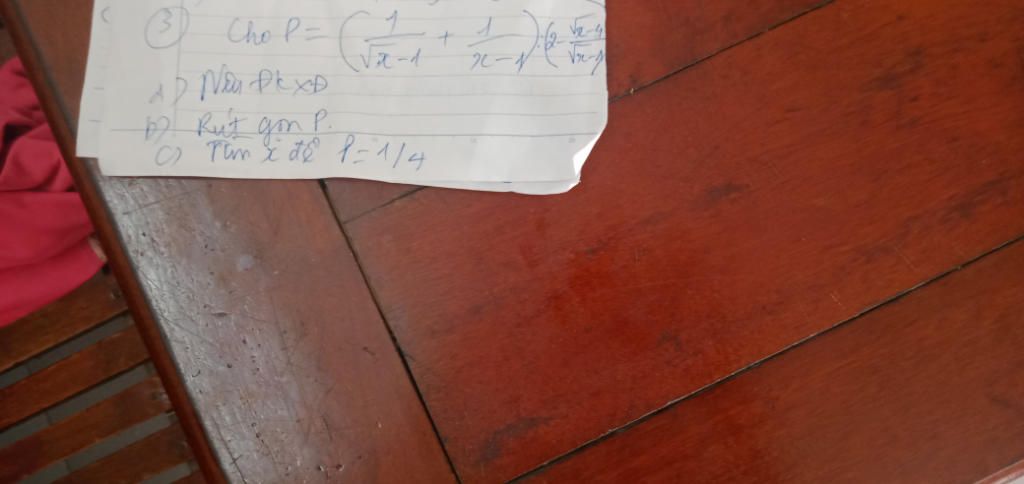 ③ Cho P = (1/(√x-1) + 1/(x-1)) : (2 - (√x-4)/(√x-1)
a) Nêu ĐK XĐ
b) Rút gọn P.
c) Tìm x để P = 1/4